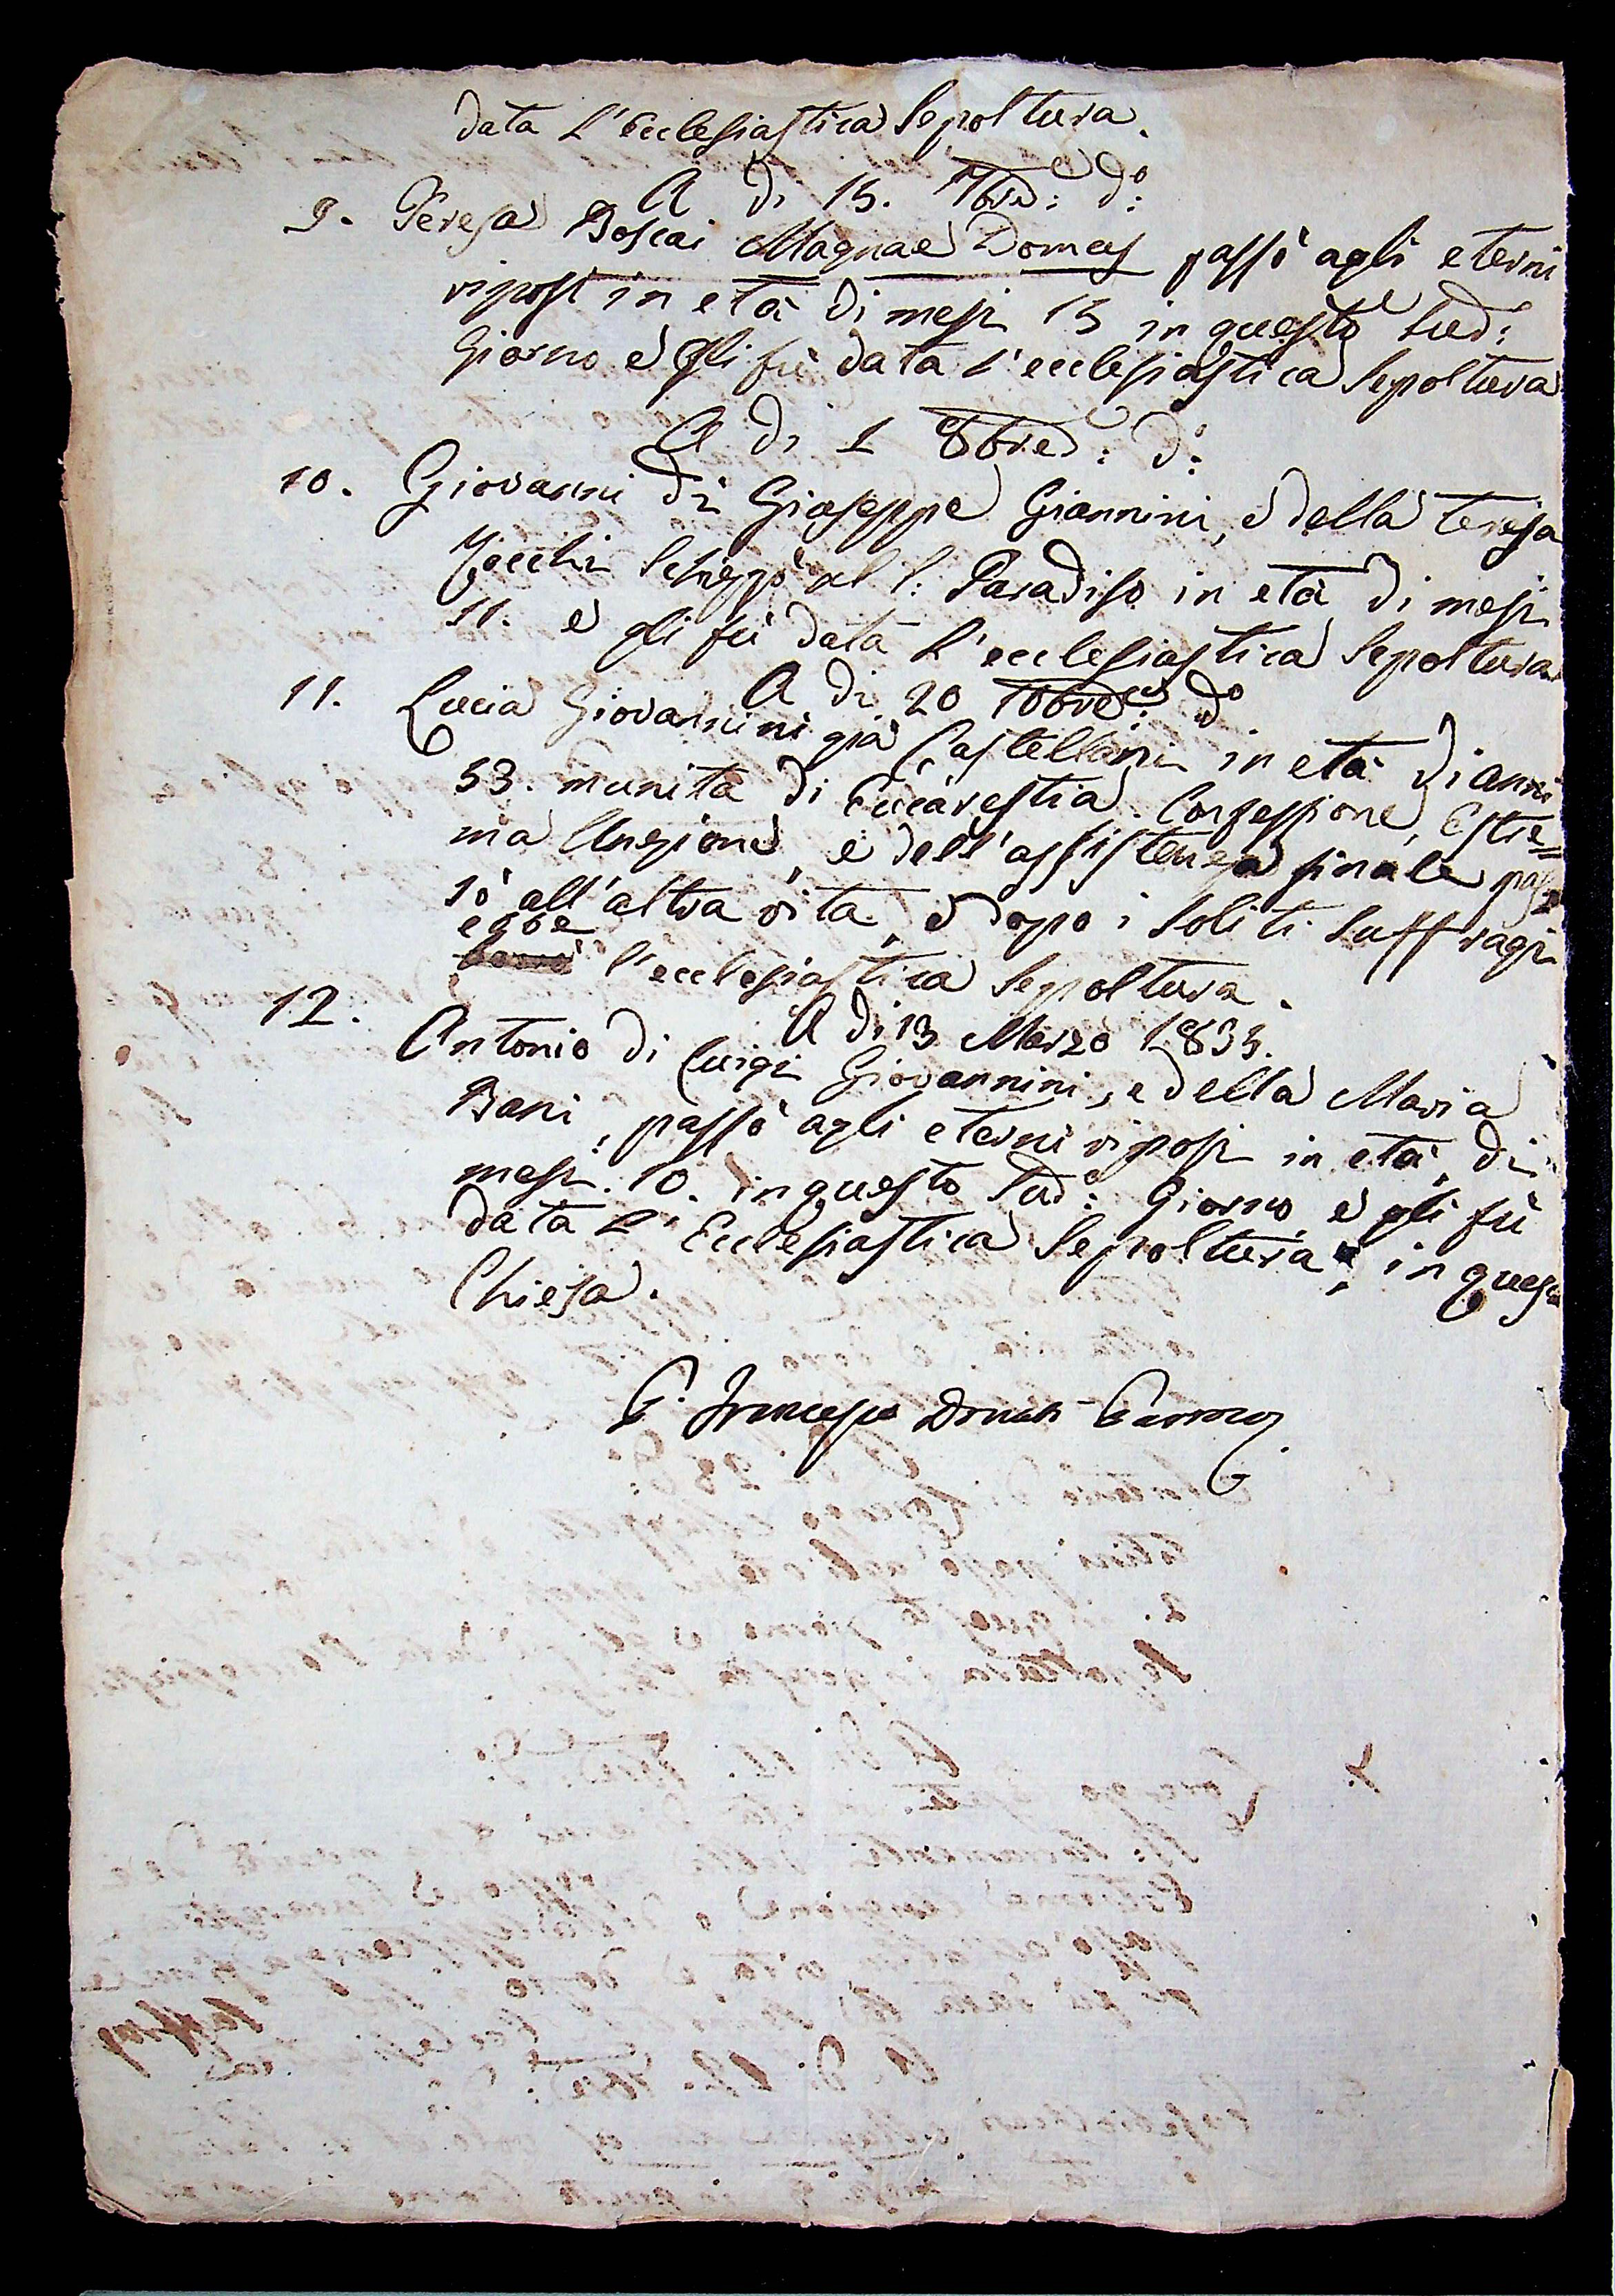 data L'Ecclesiastica Sepoltura.
A di 15. 7bre: do:
9. Teresa Boscai Magnae Domus passò agli eterni
riposi in età di mesi 15 in questo sud:
Giorno e gli fù data l'ecclesiastica Sepoltura
A di 1 8bre: do:
10. Giovanni di Giuseppe Giannini, e della Teresa
al S. Paradiso in età di mesi
11. e gli fù data L'ecclesiastica Sepoltura
A di 20 10bre: do
11. Lucia Giovannini già Castellani in età di anni
53. munita di Eucarestia. Confessione, Estre=
ma Unzione, e dell'assistenza finale pas
sò all'altra vita, e dopo i soliti suffragi
ebbe
l'ecclesiastica Sepoltura.
A di 13 Marzo 1835.
12. Antonio di Luigi Giovannini, e della Maria
Bani, passò agli eterni riposi in età, di
mesi. 10. in questo sud: Giorno e gli fù
data L'Ecclesiastica Sepoltura, in questa
Chiesa.
P. Francesco Donati